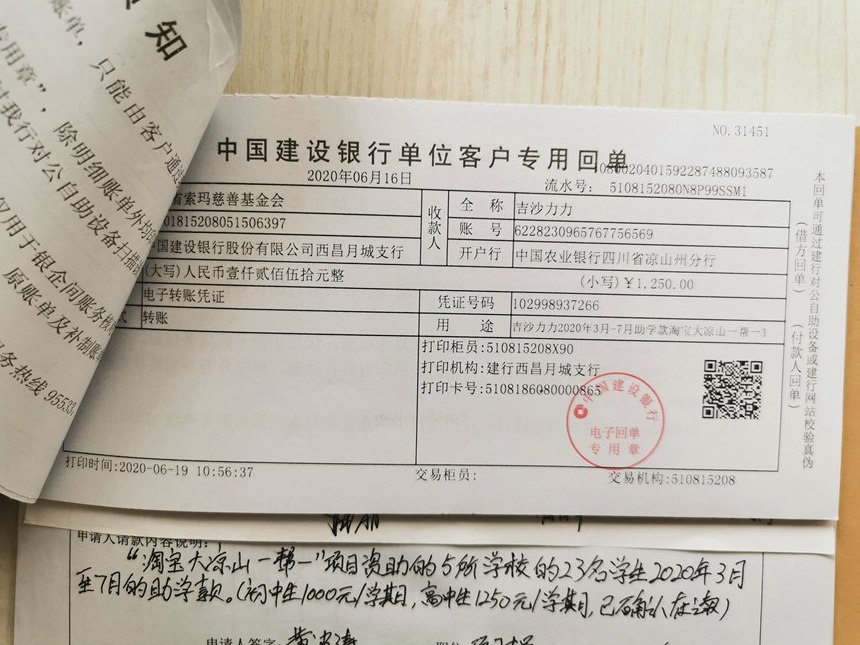 知
账单，只能由客户通过
专用章”，除明细账单外均
对我行对公自助设备扫描
仅用于银企间账务核
原账单及补制账单
服务热线 95533
NO.31451
中国建设银行单位客户专用回单
2020年06月16日
流水号： 5108152080N8P99SSM1
索玛慈善基金会
收款人
全 称
吉沙力力
01815208051506397
账 号
6228230965767756569
中国建设银行股份有限公司西昌月城支行
开户行
中国农业银行四川省凉山州分行
(大写)人民币壹仟贰佰伍拾元整
(小写)¥1,250.00
电子转账凭证
凭证号码
102998937266
转账
用 途
吉沙力力2020年3月-7月助学款淘宝大凉山一帮一3
打印柜员:510815208X90
打印机构:建行西昌月城支行
打印卡号:5108186080000865
中国建设银行
电子回单
专用章
打印时间:2020-06-19 10:56:37
交易柜员:
交易机构:510815208
本回单可通过建行对公自助设备或建行网站校验真伪
(借方回单)
(付款人回单)
申请人请款内容说明:
“淘宝大凉山一帮一”项目资助的5所学校的23名学生2020年3月
至7月的助学款。(初中生1000元/学期,高中生1250元/学期,已确认在读)
申请人签字: